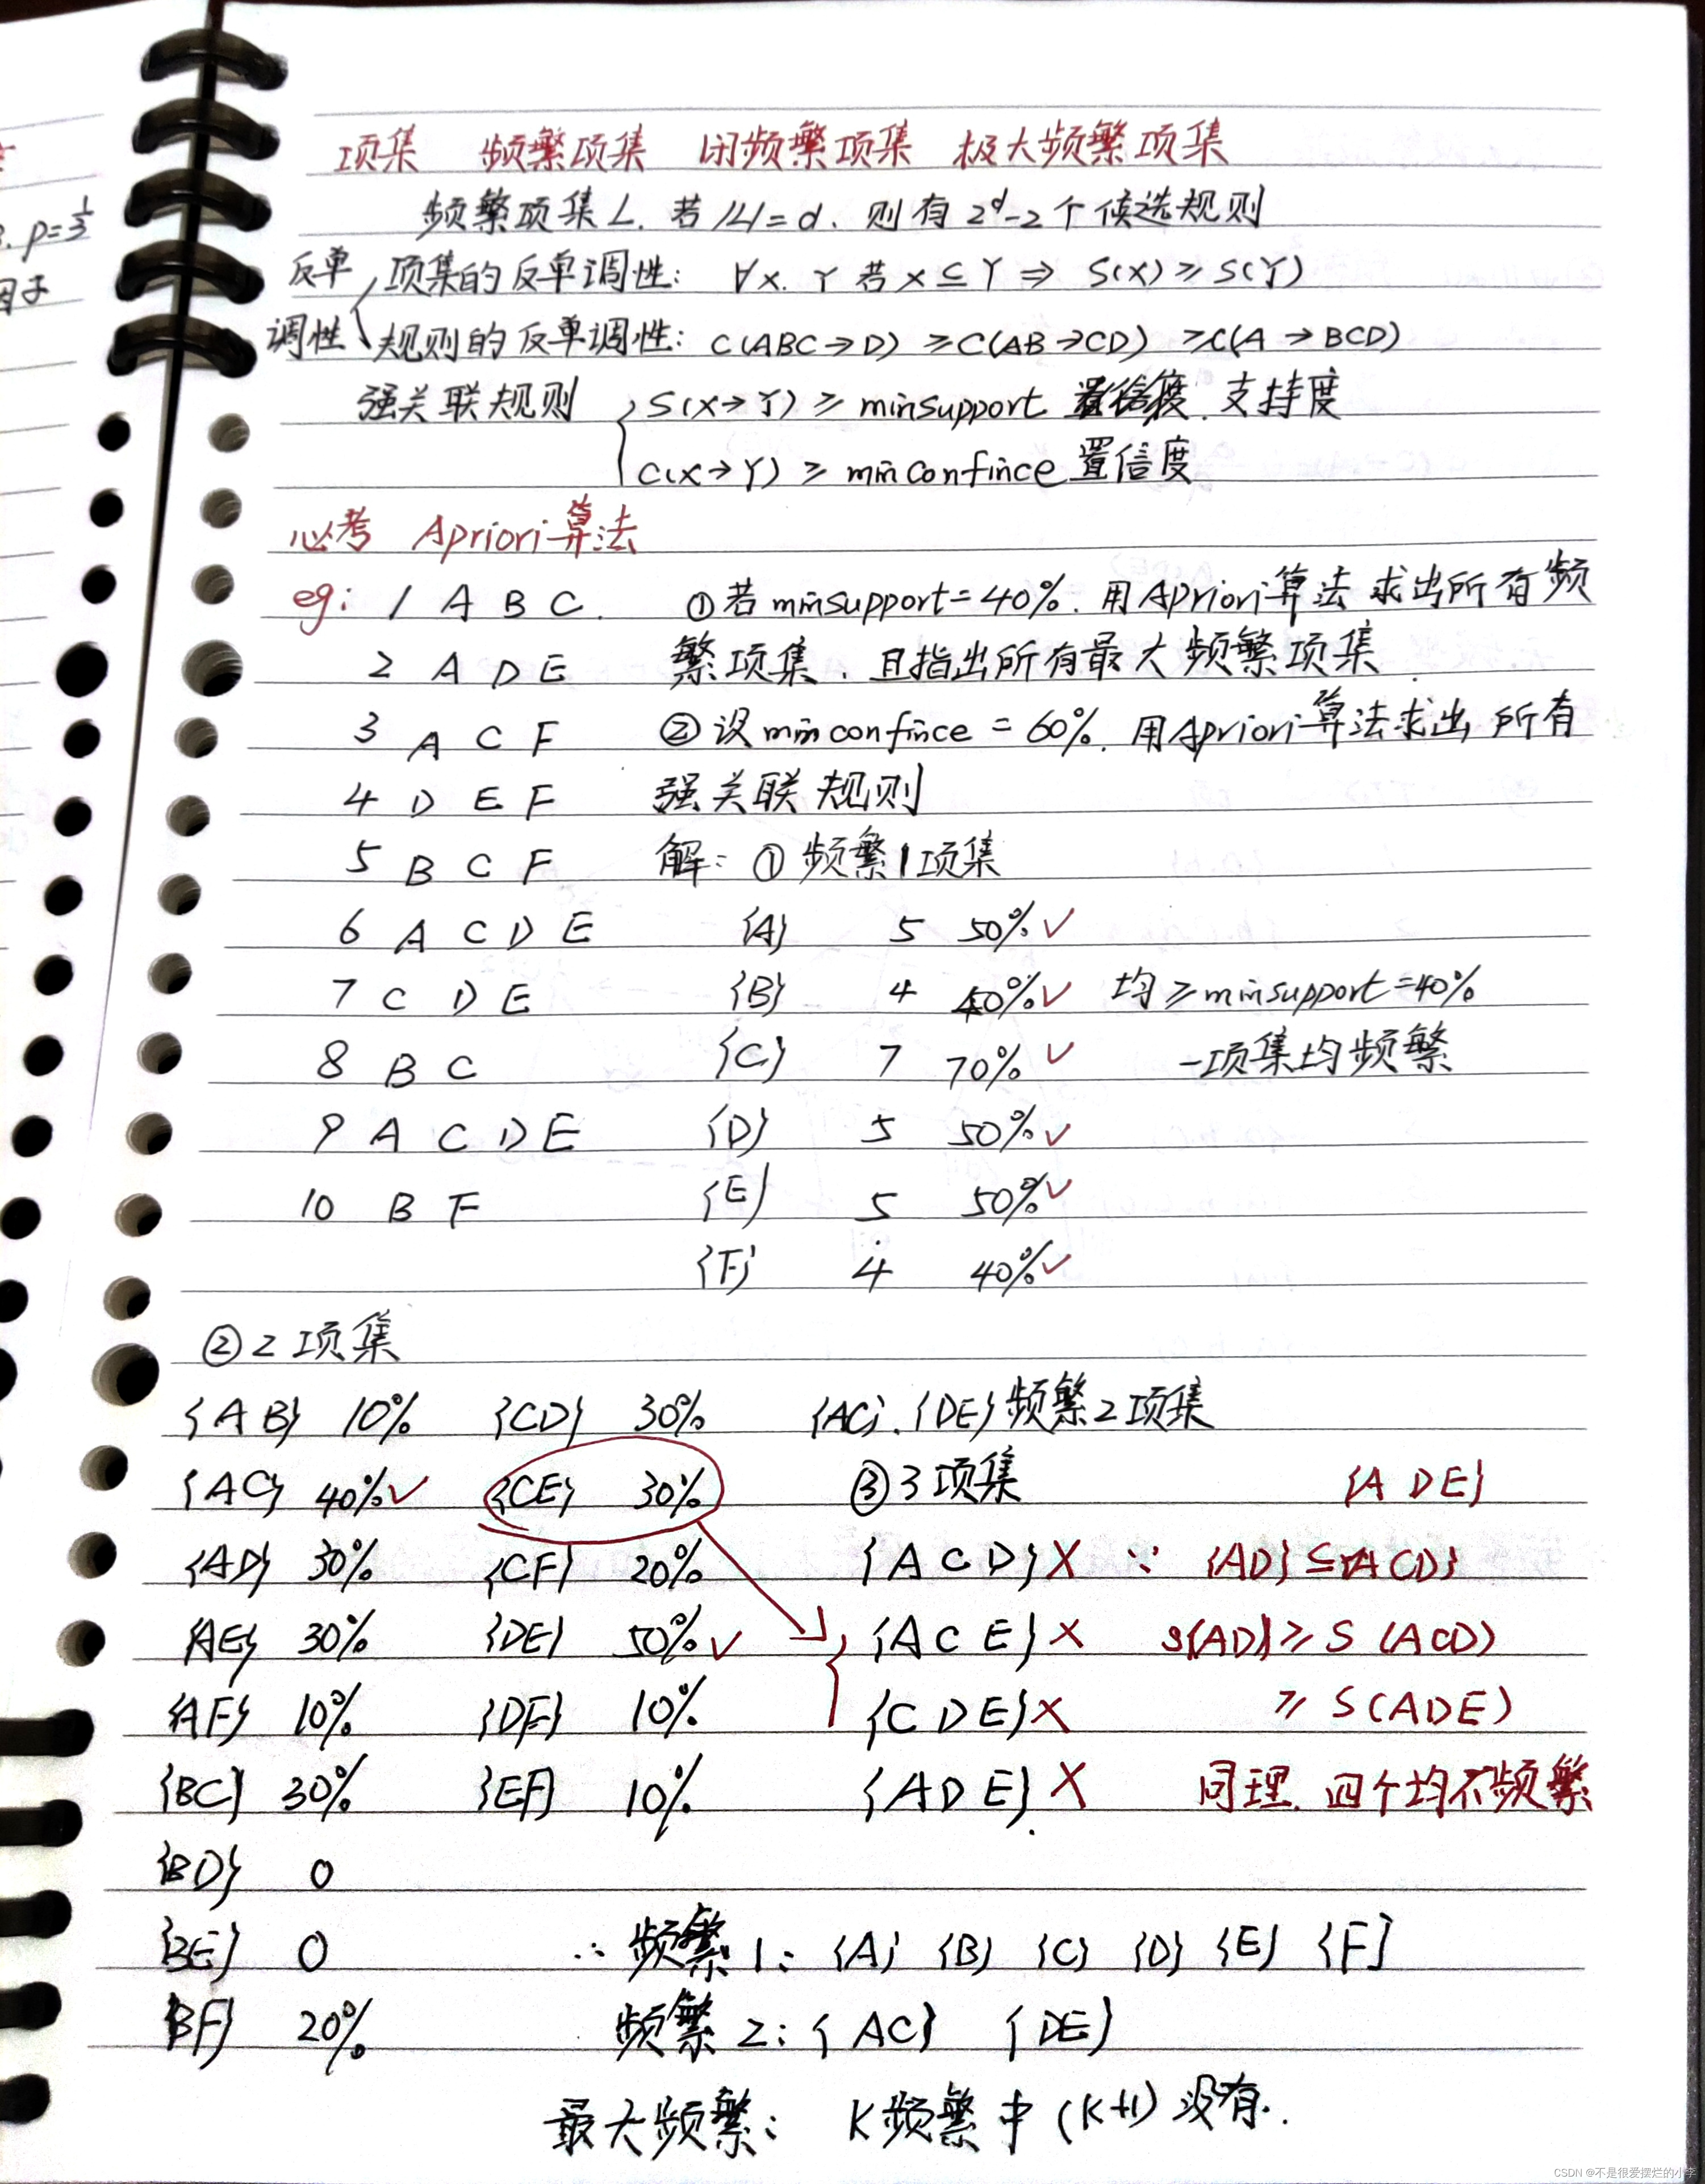 项集 频繁项集 闭频繁项集 极大频繁项集
频繁项集L. 若|L|=d. 则有2^d-2个候选规则
P=1/3
因子
反单调性
项集的反单调性: ∀X. Y 若X⊆Y ⇒ S(X)≥S(Y)
规则的反单调性: C(ABC→D) ≥C(AB→CD) ≥C(A→BCD)
强关联规则 S(X→Y) ≥ minsupport 支持度
C(X→Y) ≥ minconfince 置信度
必考 Apriori算法
eg: 1 A B C. ①若minsupport=40%. 用Apriori算法求出所有频
2 A D E 繁项集. 且指出所有最大频繁项集.
3 A C F ②设minconfince = 60%. 用Apriori算法求出所有
4 D E F 强关联规则
5 B C F 解: ①频繁1项集
6 A C D E {A} 5 50%✓
7 C D E {B} 4 40%✓ 均≥minsupport=40%
8 B C {C} 7 70%✓ 一项集均频繁
9 A C D E {D} 5 50%✓
10 B F {E} 5 50%✓
{F} 4 40%✓
②2项集
{AB} 10% {CD} 30% {AC}.{DE}频繁2项集
{AC} 40%✓ {CE} 30% ③3项集 {A DE}
{AD} 30% {CF} 20% {A C D}X ∵ {AD}⊆{ACD}
{AE} 30% {DE} 50%✓ {A C E}X S(AD)≥ S(ACD)
{AF} 10% {DF} 10% {C D E}X ≥ S(ADE)
{BC} 30% {EF} 10% {A D E}X 同理. 四个均不频繁
{BD} 0
{BE} 0 ∴ 频繁1: {A} {B} {C} {D} {E} {F}
{BF} 20% 频繁2: {AC} {DE}
最大频繁: K频繁中(K+1)没有.
CSDN @不是很爱摆烂的小李